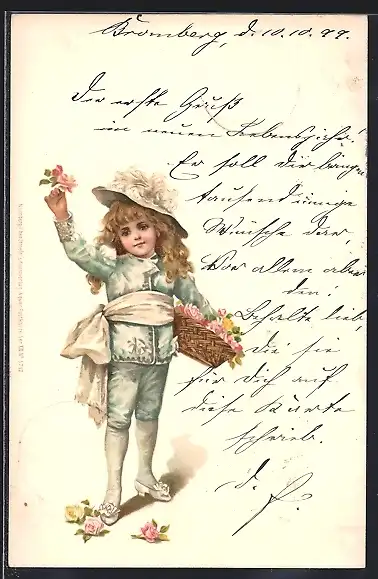 Bromberg, d. 10.10.99.
Der erste Gruß
im neuen Lebensjahr!
Er soll dir bringen
tausend innige
Wünsche dar,
Vor allem aber
den:
Behalte lieb,
die sie
für dich auf
diese Karte
schrieb.
d. P.